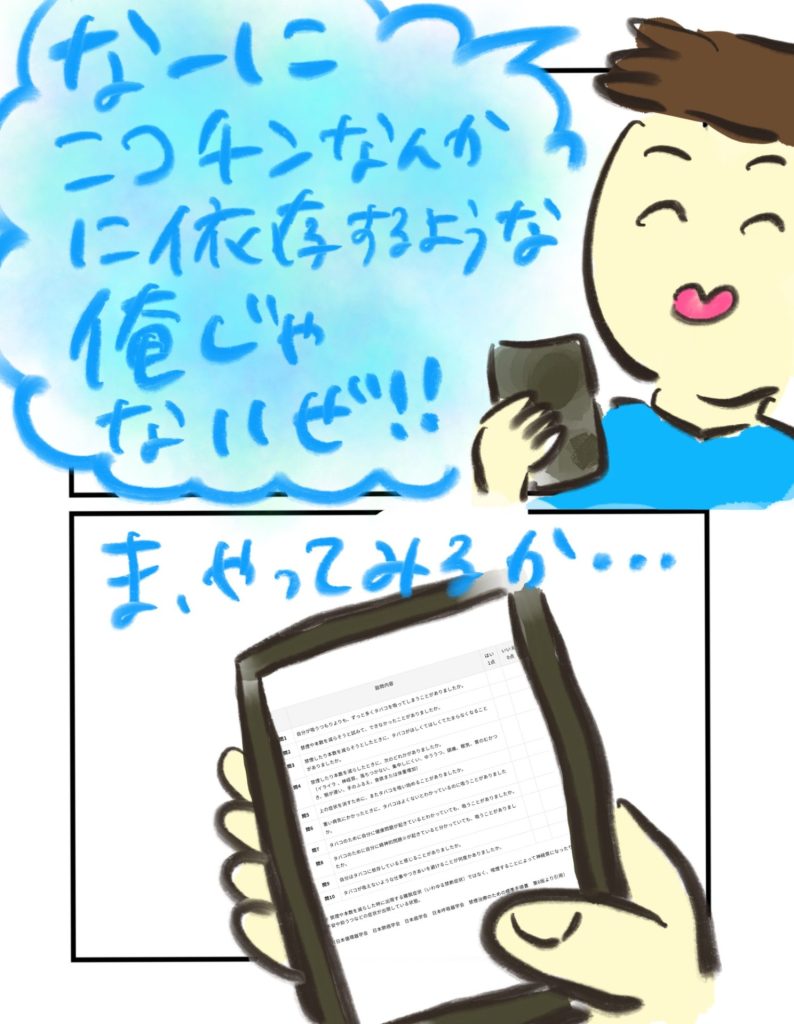 なーに
ニコチンなんか
に依存するような
俺じゃ
ないぜ!!
ま、やってみるか・・・
設問内容
はい
1点
いいえ
0点
問1 自分が吸うつもりよりも、ずっと多くタバコを吸ってしまうことがありましたか。
問2 禁煙や本数を減らそうと試みて、できなかったことがありましたか。
問3 禁煙したり本数を減らそうとしたときに、タバコがほしくてほしくてたまらなくなること
がありましたか。
問4 禁煙したり本数を減らしたときに、次のどれかがありましたか。
(イライラ、神経質、落ちつかない、集中しにくい、ゆううつ、頭痛、眠気、胃のむかつ
き、脈が遅い、手のふるえ、食欲または体重増加)
問5 上の症状を消すために、またタバコを吸い始めることがありましたか。
問6 重い病気にかかったときに、タバコはよくないとわかっているのに吸うことがありました
か。
問7 タバコのために自分に健康問題が起きているとわかっていても、吸うことがありましたか。
問8 タバコのために自分に精神的問題※が起きていると分かっていても、吸うことがありまし
たか。
問9 自分はタバコに依存していると感じることがありましたか。
問10 タバコが吸えないような仕事やつきあいを避けることが何度かありましたか。
禁煙や本数を減らした時に出現する離脱症状（いわゆる禁断症状）ではなく、喫煙することによって神経質になった
不安や抑うつなどの症状が出現している状態。
日本循環器学会 日本肺癌学会 日本癌学会 日本呼吸器学会 禁煙治療のための標準手順書 第6版より引用）